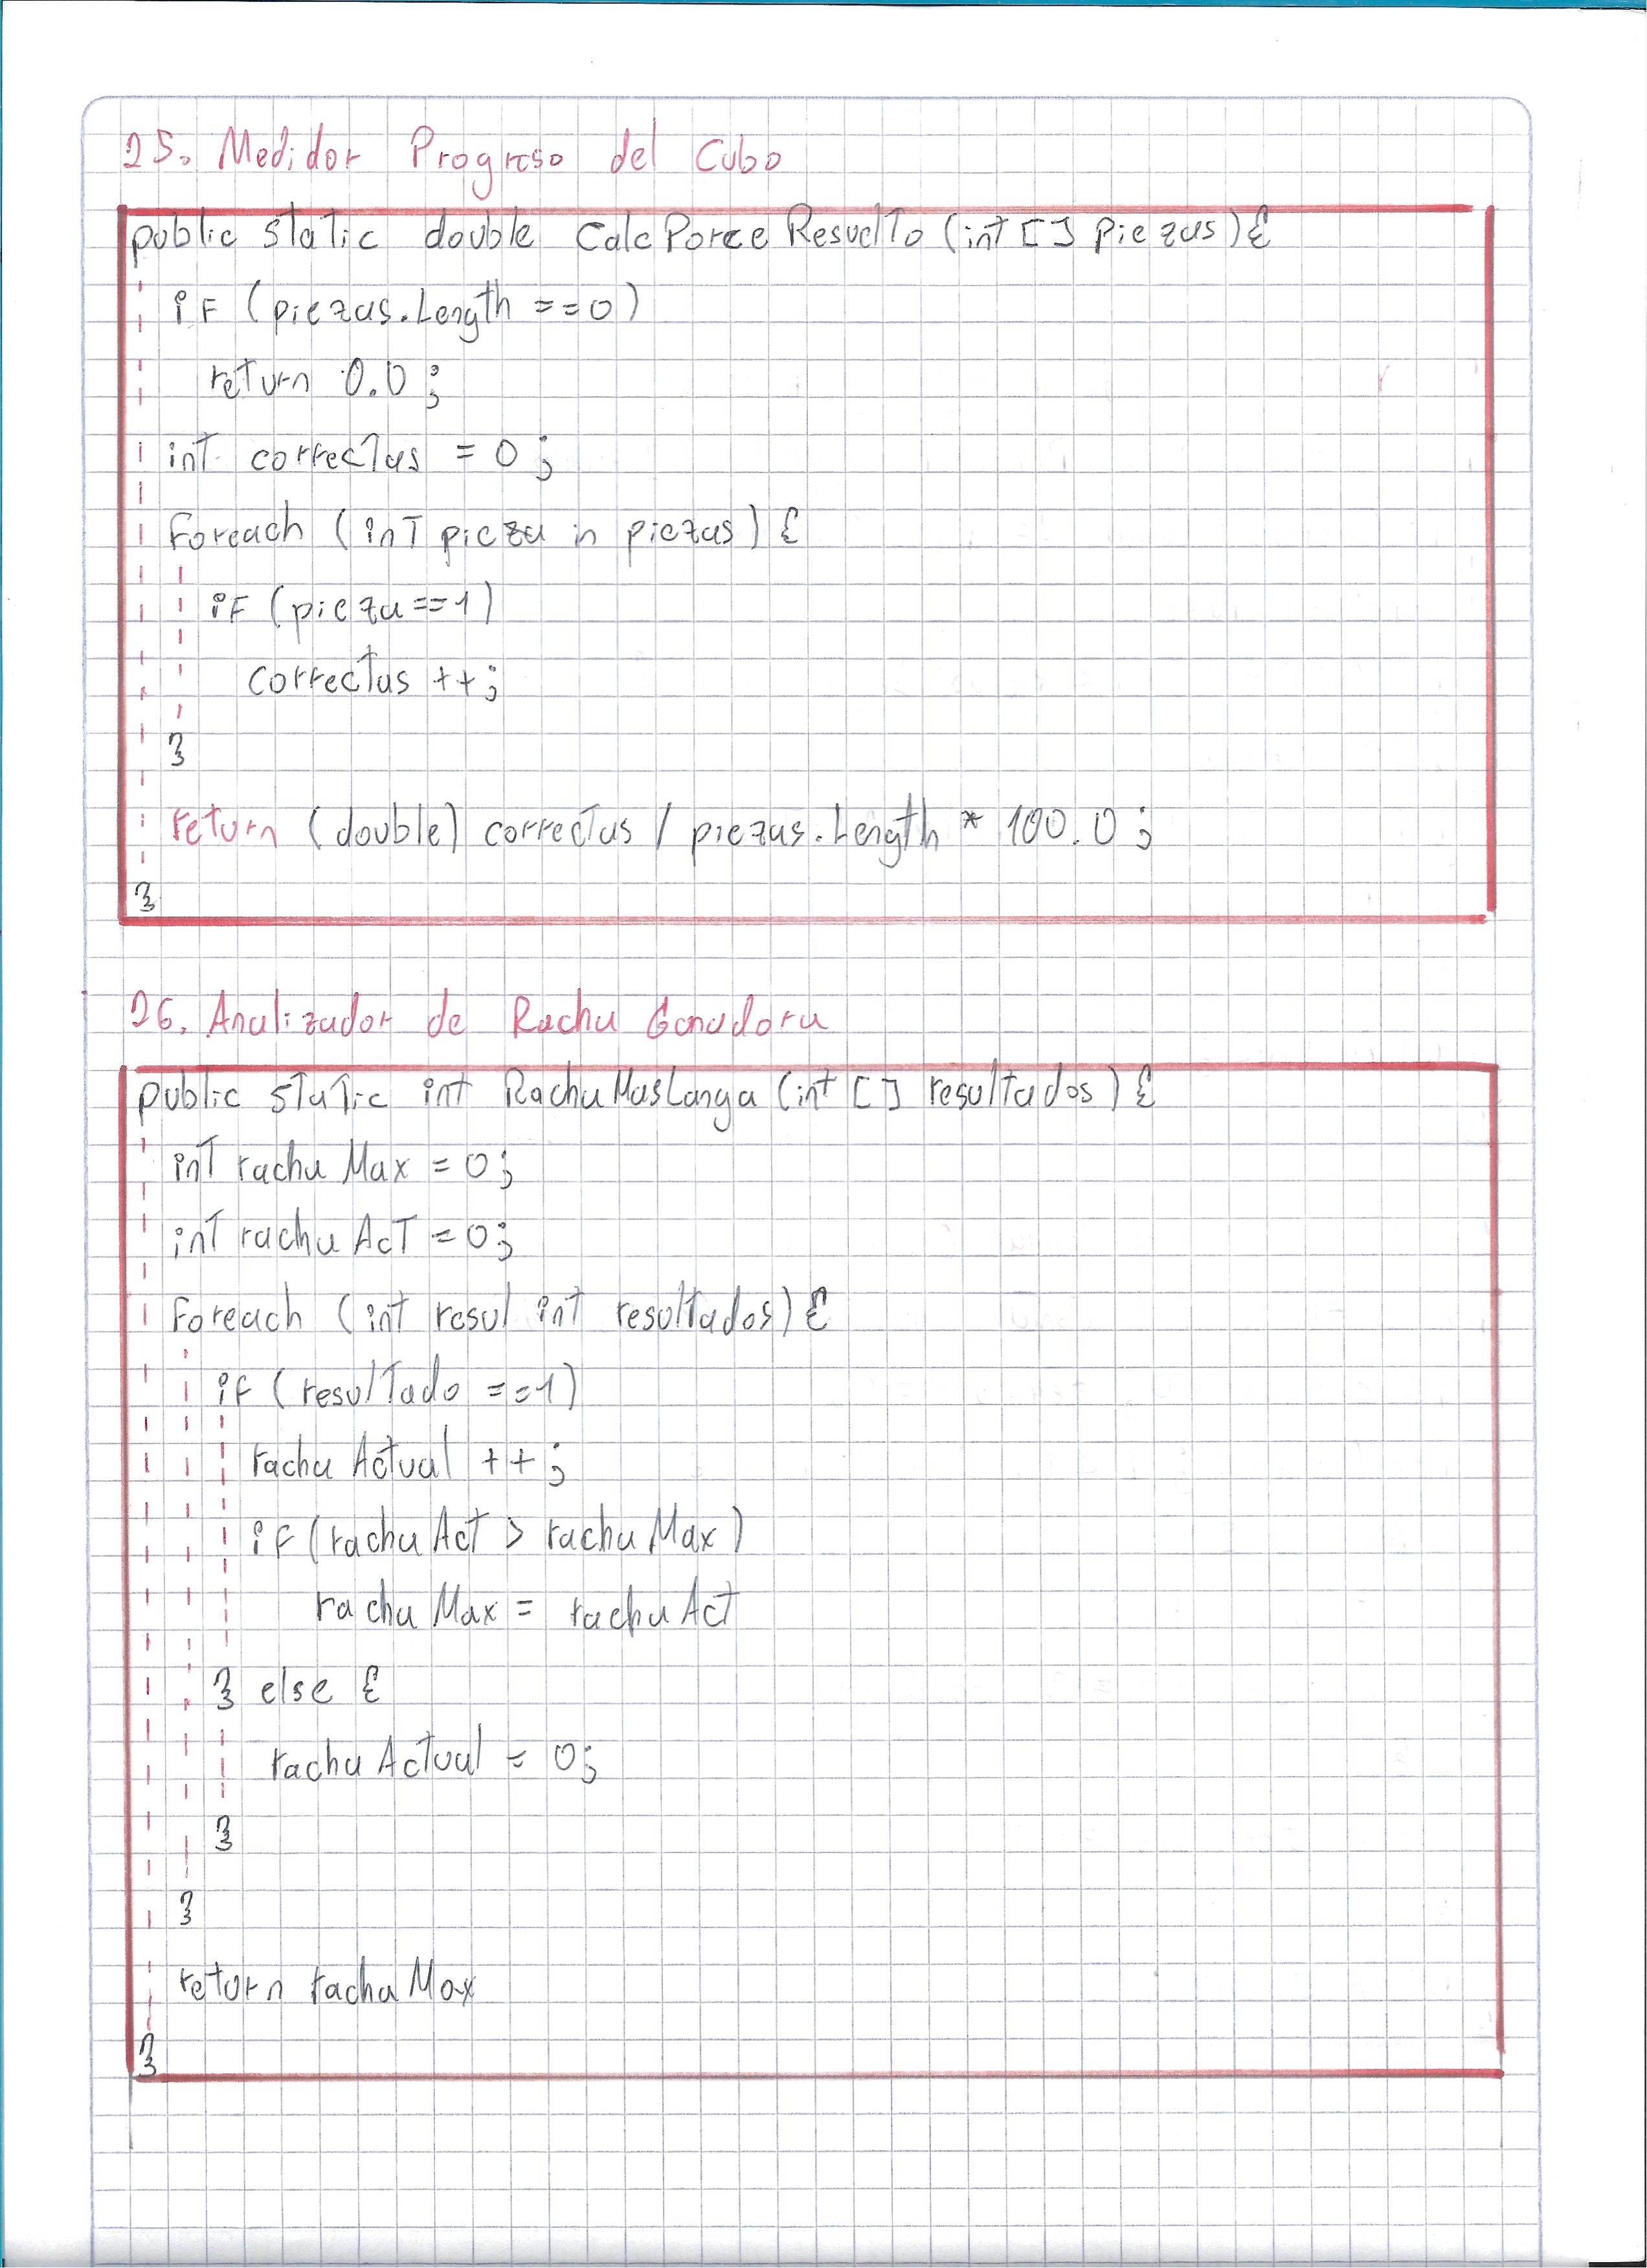 25. Medidor Progreso del Cubo
public static double CalcPorceResuelto (int [] piezas) {
if (piezas.Length ==0)
return 0.0;
int correctas = 0;
foreach (int pieza in piezas) {
if (pieza==1)
correctas ++;
}
return (double) correctas / piezas.Length * 100.0;
}
26. Analizador de Racha Ganadora
public static int RachaMasLarga (int [] resultados) {
int racha Max = 0;
int racha Act = 0;
foreach (int resul int resultados) {
if (resultado ==1)
racha Actual ++;
if (racha Act > racha Max)
racha Max = racha Act
} else {
racha Actual = 0;
}
}
return racha Max
}